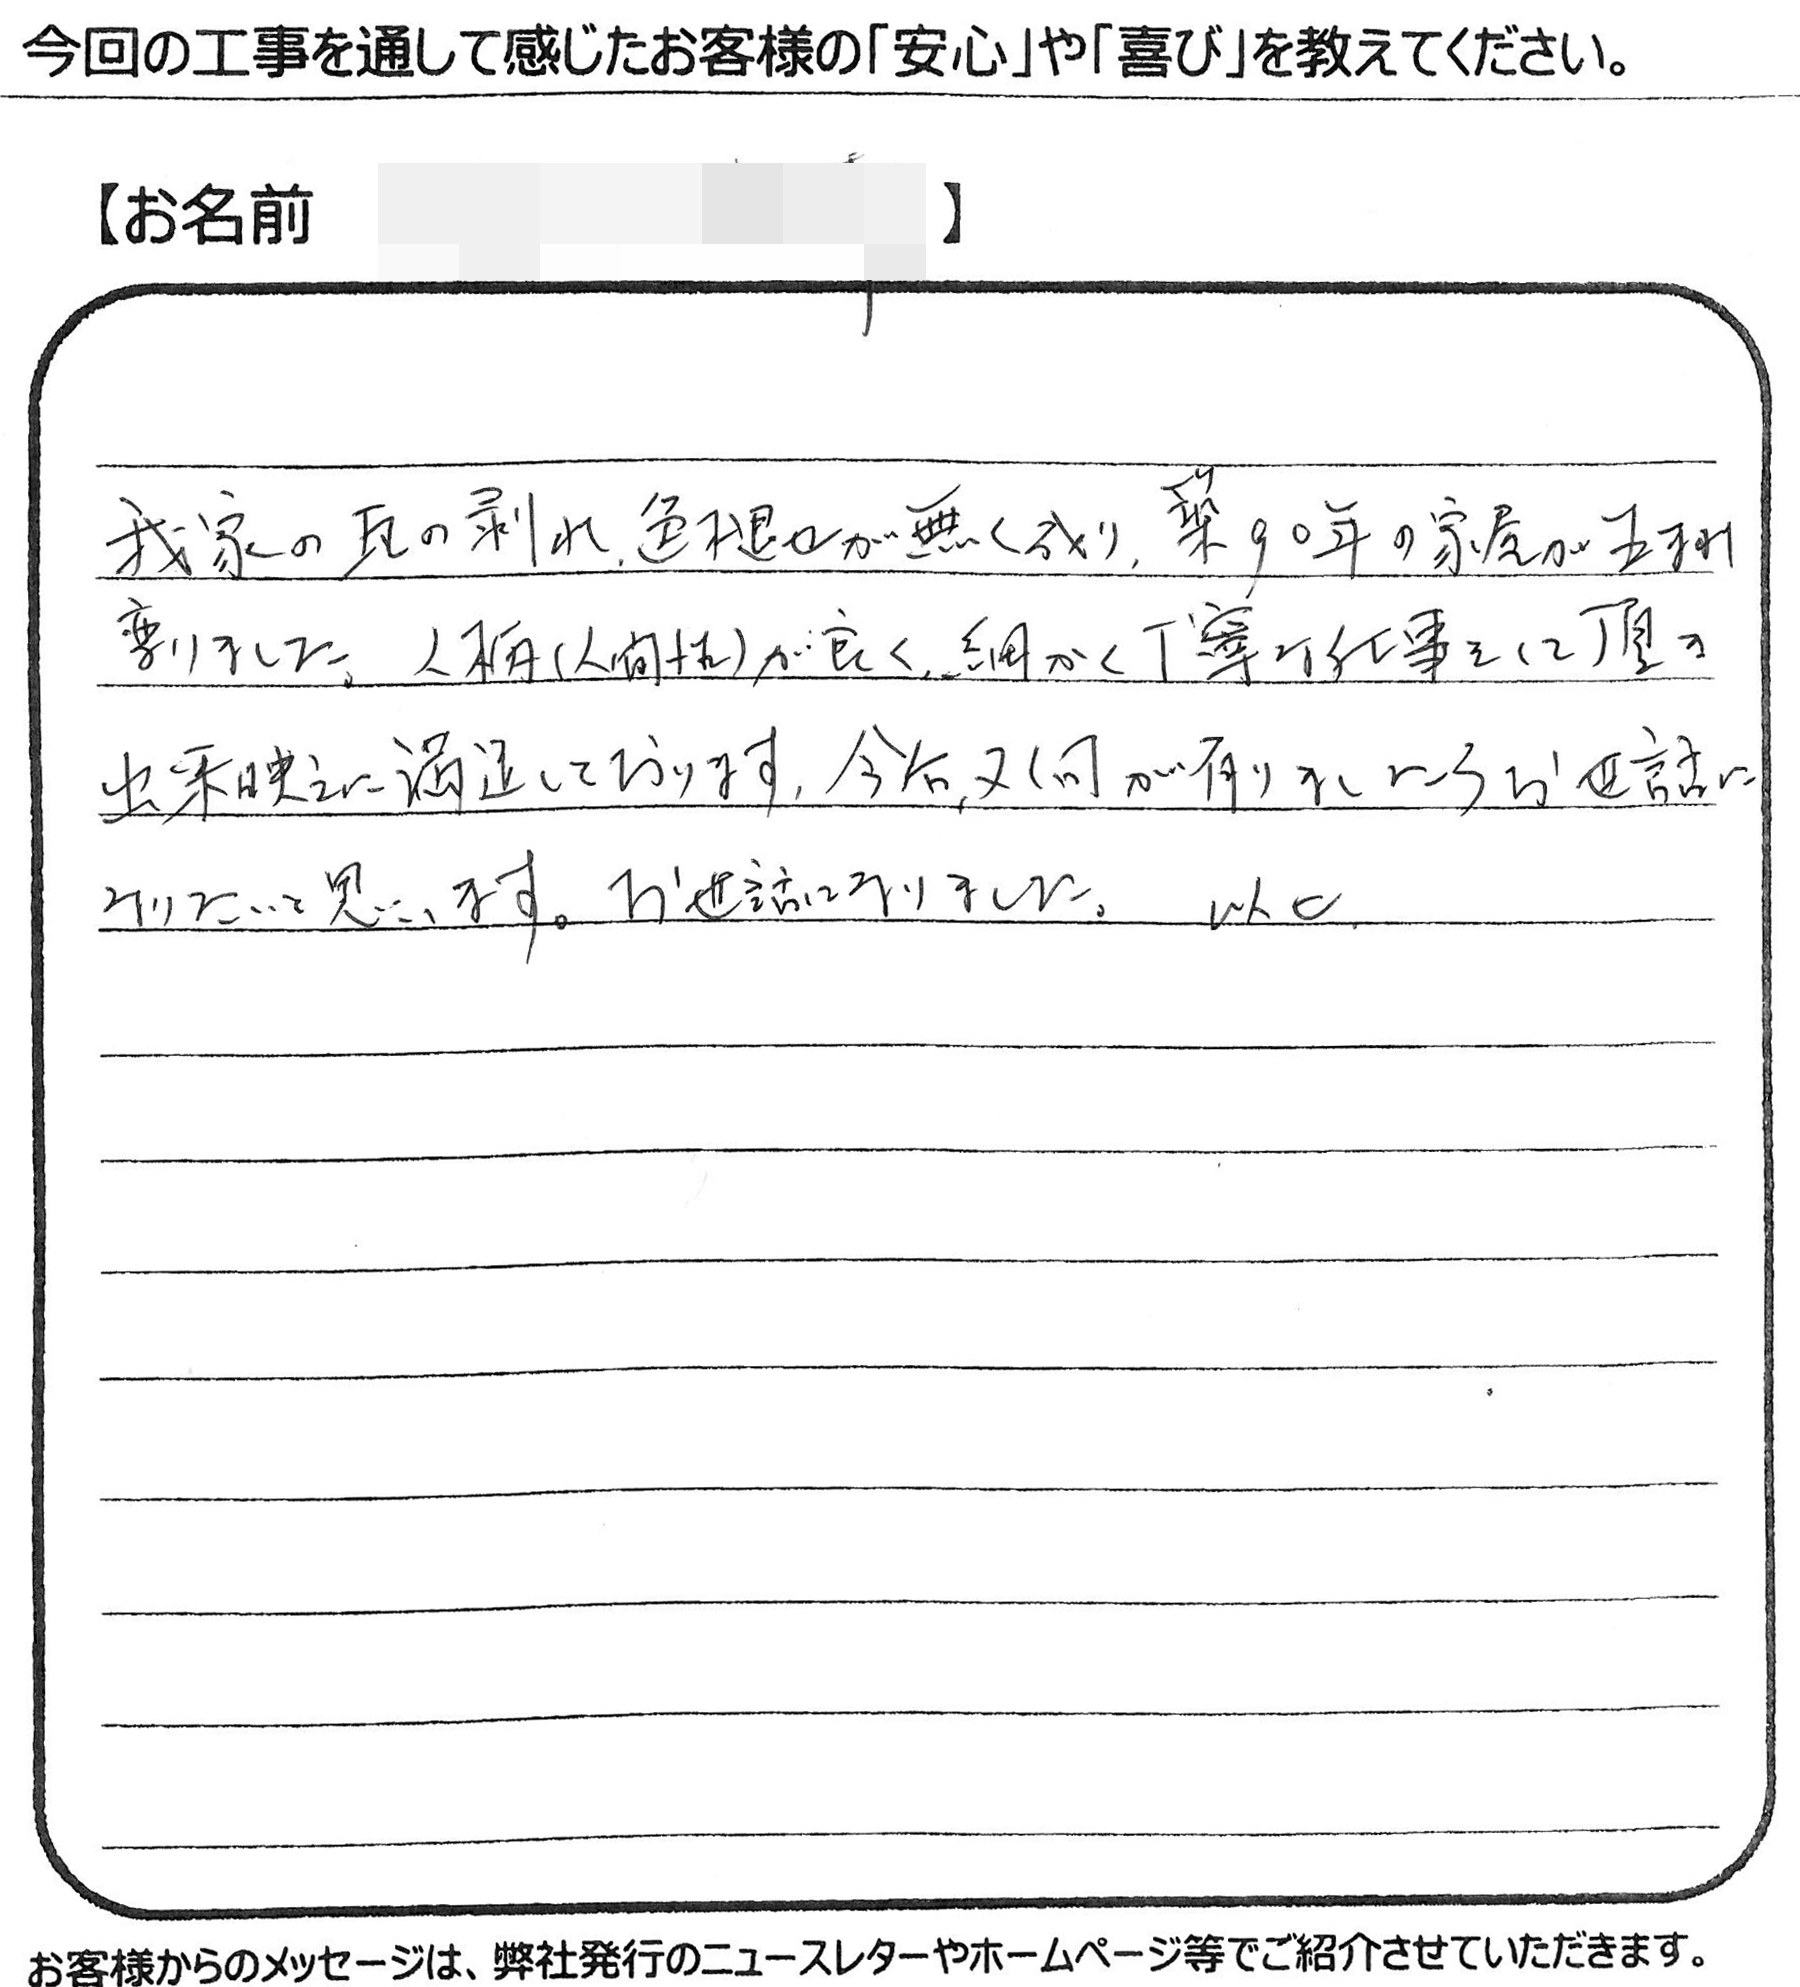 今回の工事を通して感じたお客様の「安心」や「喜び」を教えてください。
【お名前 】
我家の瓦の剥れ、色褪せが無く成り、築90年の家屋が生まれ
変りました。人柄(人間性)が良く、細かく丁寧な仕事をして頂き
出来映えに満足しております。今后、又何か有りましたらお世話に
なりたいと思います。お世話になりました。 以上
お客様からのメッセージは、弊社発行のニュースレターやホームページ等でご紹介させていただきます。